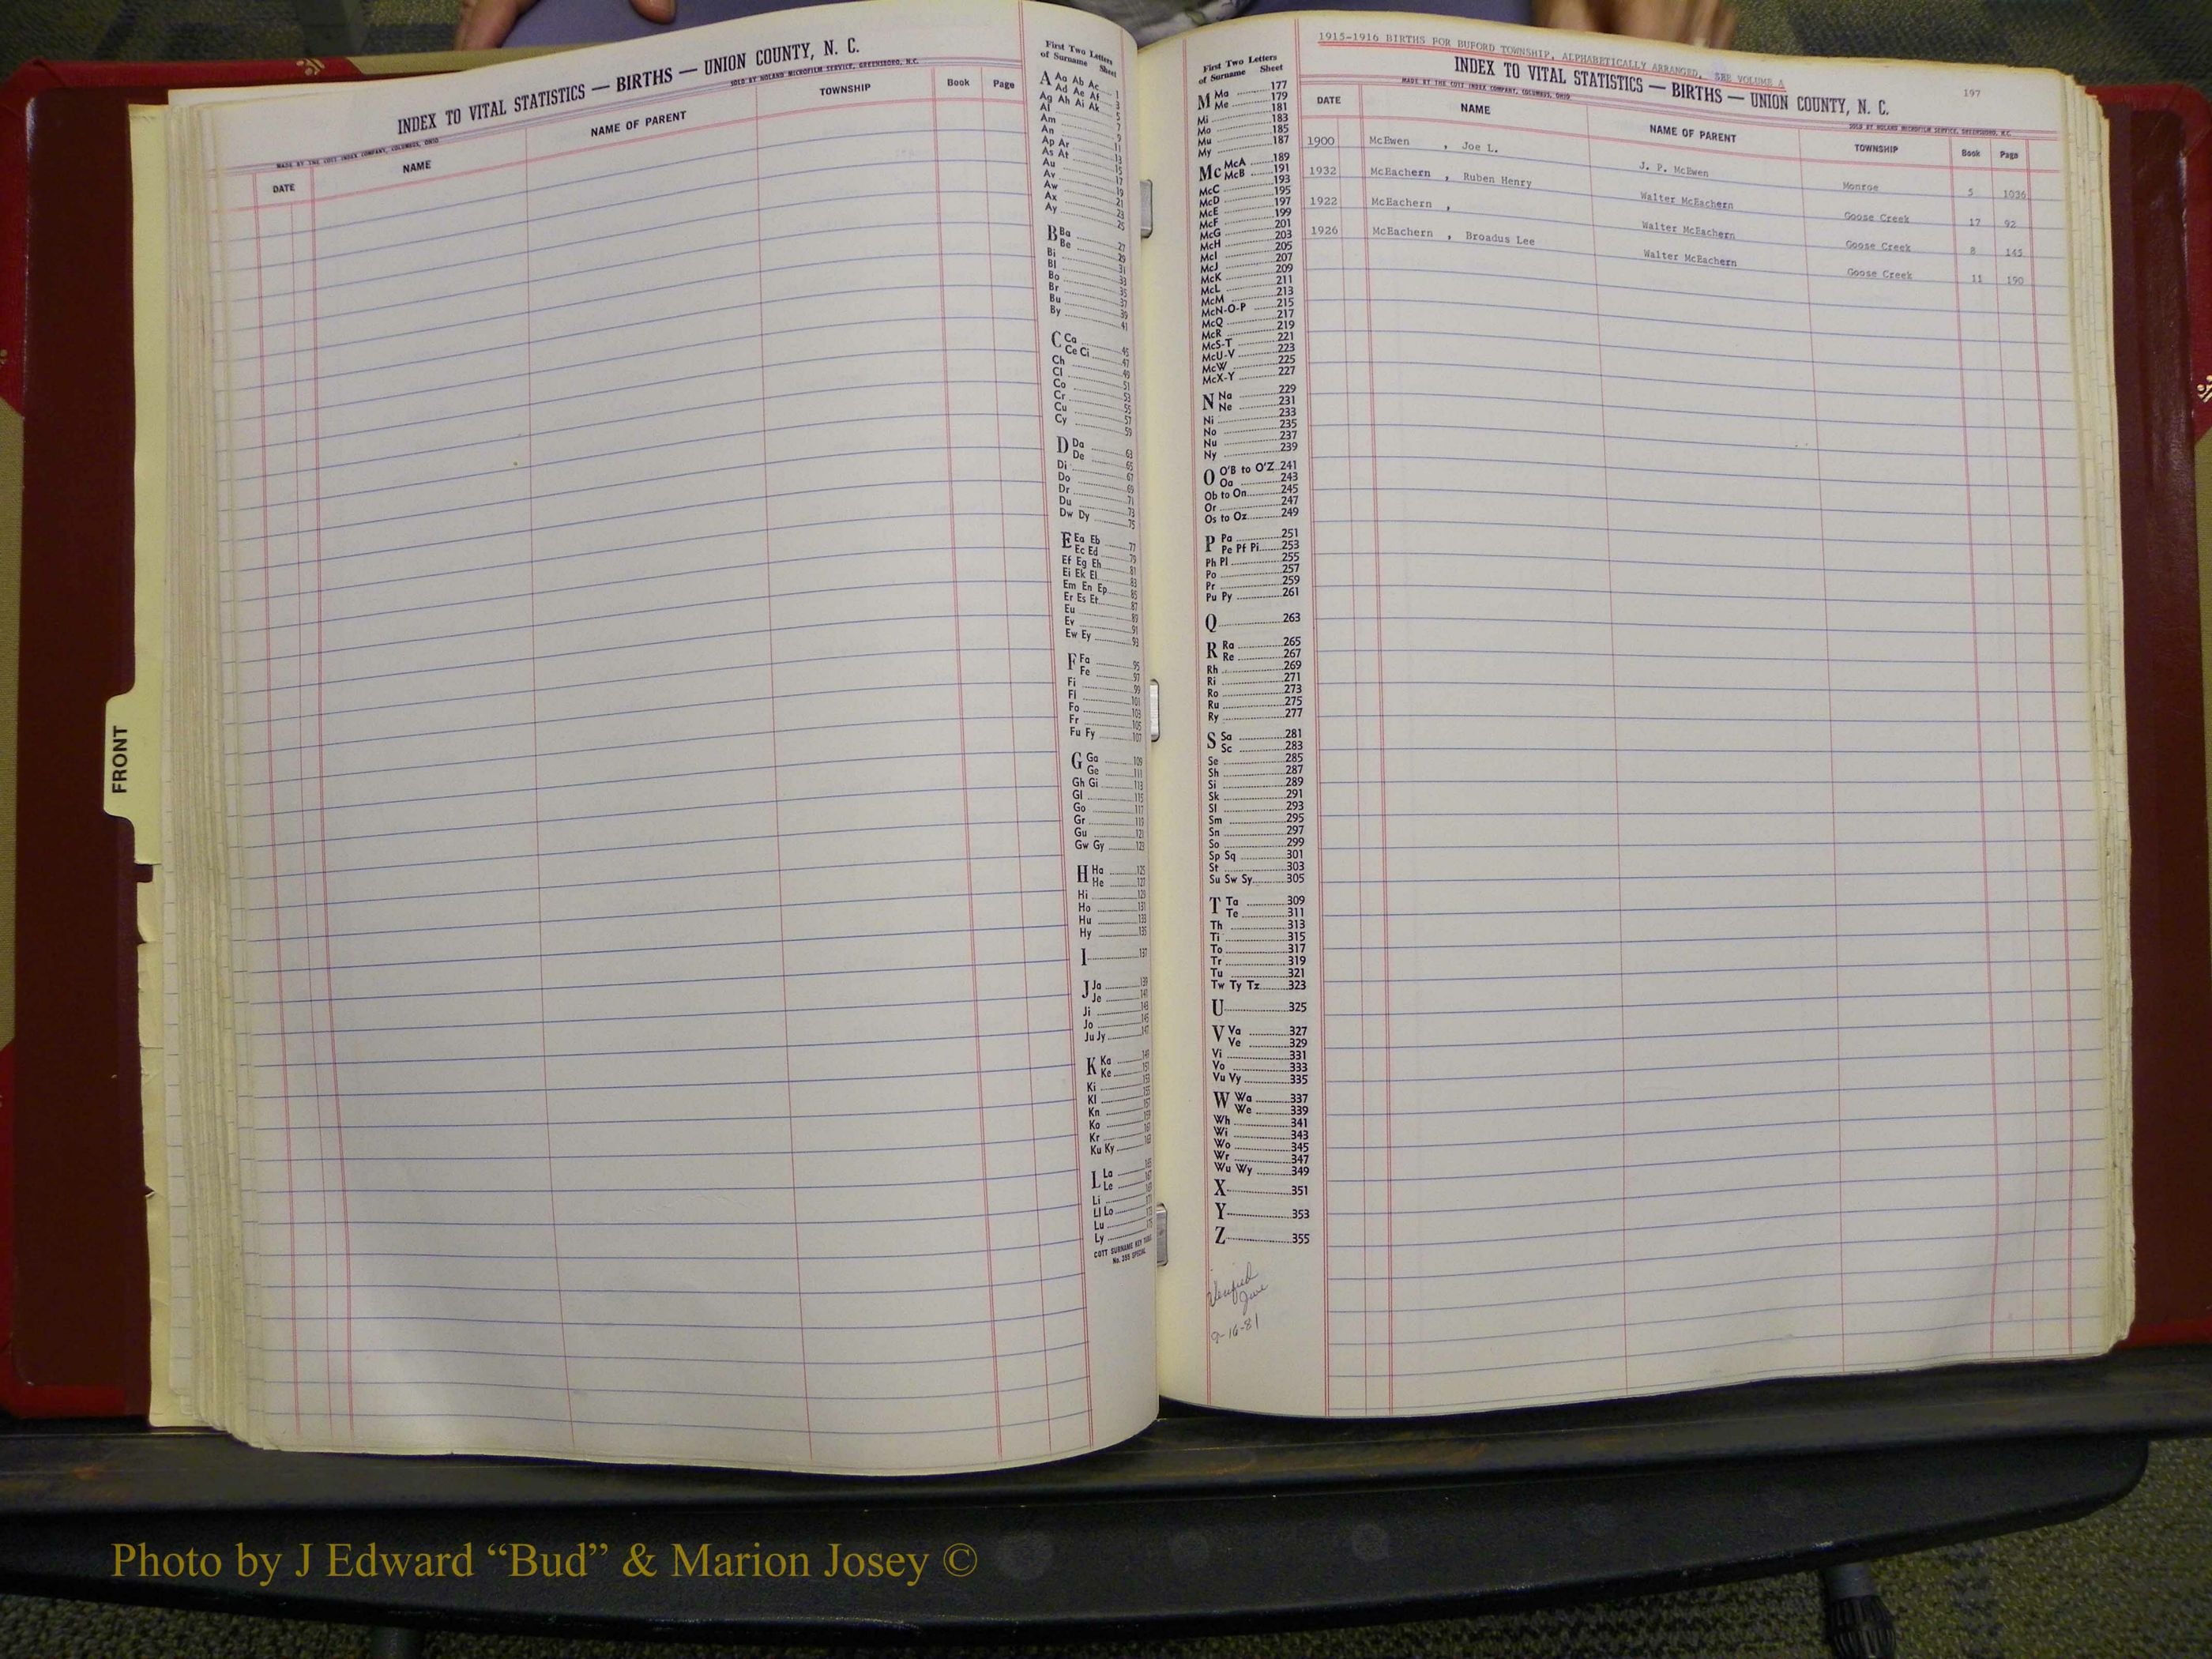 INDEX TO VITAL STATISTICS — BIRTHS — UNION COUNTY, N. C.
MADE BY THE COTT INDEX COMPANY, COLUMBUS, OHIO
SOLD BY NOLAND MICROFILM SERVICE, GREENSBORO, N.C.
DATE NAME NAME OF PARENT TOWNSHIP Book Page
First Two Letters
of Surname Sheet
A Aa Ab Ac 1
Ad Ae Af 3
Ag Ah Ai Ak 5
Al 7
Am 9
An 11
Ap Ar 13
As At 15
Au 17
Av 19
Aw 21
Ax 23
Ay 25
B Ba 27
Be 29
Bi 31
Bl 33
Bo 35
Br 37
Bu 39
By 41
C Ca 45
Ce Ci 47
Ch 49
Cl 51
Co 53
Cr 55
Cu 57
Cy 59
D Da 63
De 65
Di 67
Do 69
Dr 71
Du 73
Dw Dy 75
E Ea Eb 77
Ec Ed 79
Ef Eg Eh 81
Ei Ek El 83
Em En Ep 85
Er Es Et 87
Eu 89
Ev 91
Ew Ey 93
F Fa 95
Fe 97
Fi 99
Fl 101
Fo 103
Fr 105
Fu Fy 107
G Ga 109
Ge 111
Gh Gi 113
Gl 115
Go 117
Gr 119
Gu 121
Gw Gy 123
H Ha 125
He 127
Hi 129
Ho 131
Hu 133
Hy 135
I 137
J Ja 139
Je 141
Ji 143
Jo 145
Ju Jy 147
K Ka 149
Ke 151
Ki 153
Kl
Kn
Ko
Kr
Ku Ky
L La
Le
Li
Ll Lo
Lu
Ly
COTT SURNAME KEY TABLE
No. 355 SPECIAL
FRONT
1915-1916 BIRTHS FOR BUFORD TOWNSHIP, ALPHABETICALLY ARRANGED, SEE VOLUME A
INDEX TO VITAL STATISTICS — BIRTHS — UNION COUNTY, N. C.
197
MADE BY THE COTT INDEX COMPANY, COLUMBUS, OHIO
SOLD BY NOLAND MICROFILM SERVICE, GREENSBORO, N.C.
DATE NAME NAME OF PARENT TOWNSHIP Book Page
1900 McEwen , Joe L. J. P. McEwen Monroe 5 1036
1932 McEachern , Ruben Henry Walter McEachern Goose Creek 17 92
1922 McEachern , Walter McEachern Goose Creek 8 145
1926 McEachern , Broadus Lee Walter McEachern Goose Creek 11 190
First Two Letters
of Surname Sheet
M Ma 177
Me 179
Mi 181
Mo 183
Mu 185
My 187
Mc McA 189
McB 191
McC 193
McD 195
McE 197
McF 199
McG 201
McH 203
McI 205
McJ 207
McK 209
McL 211
McM 213
McN-O-P 215
McQ 217
McR 219
McS-T 221
McU-V 223
McW 225
McX-Y 227
N Na 229
Ne 231
Ni 233
No 235
Nu 237
Ny 239
O O'B to O'Z 241
Oa 243
Ob to On 245
Or 247
Os to Oz 249
P Pa 251
Pe Pf Pi 253
Ph Pl 255
Po 257
Pr 259
Pu Py 261
Q 263
R Ra 265
Re 267
Rh 269
Ri 271
Ro 273
Ru 275
Ry 277
S Sa 281
Sc 283
Se 285
Sh 287
Si 289
Sk 291
Sl 293
Sm 295
Sn 297
So 299
Sp Sq 301
St 303
Su Sw Sy 305
T Ta 309
Te 311
Th 313
Ti 315
To 317
Tr 319
Tu 321
Tw Ty Tz 323
U 325
V Va 327
Ve 329
Vi 331
Vo 333
Vu Vy 335
W Wa 337
We 339
Wh 341
Wi 343
Wo 345
Wr 347
Wu Wy 349
X 351
Y 353
Z 355
Verified
9-16-81
Photo by J Edward “Bud” & Marion Josey ©